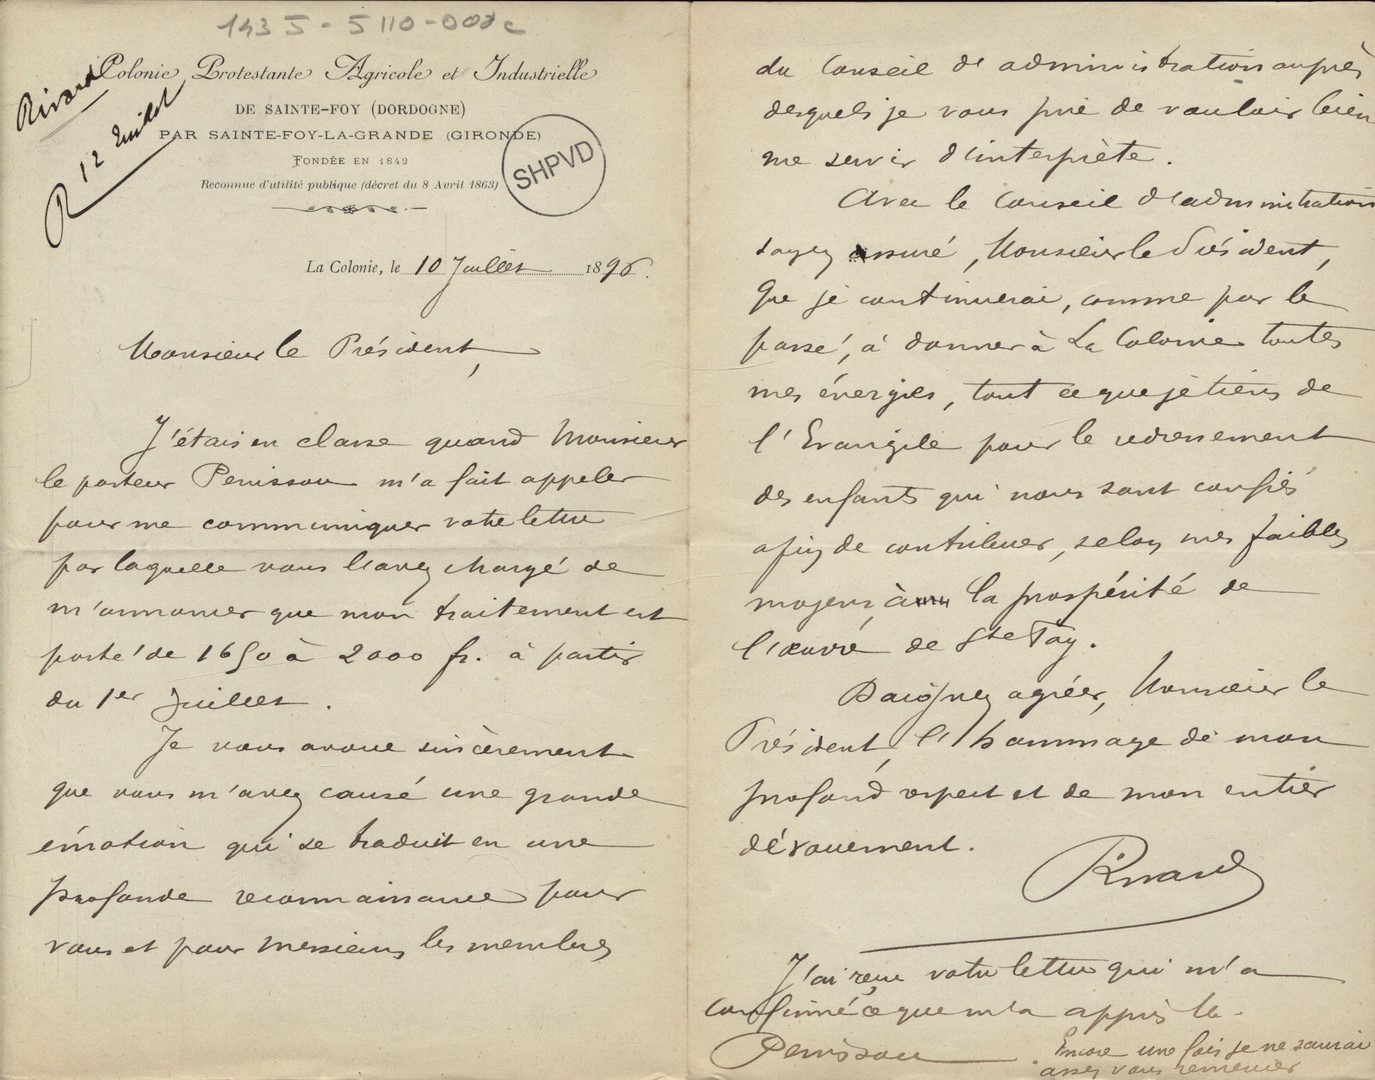 143 J - 5 110 - 007 c
Rivard
R 12 Juillet
Colonie Protestante Agricole et Industrielle
DE SAINTE-FOY (DORDOGNE)
PAR SAINTE-FOY-LA-GRANDE (GIRONDE)
FONDÉE EN 1842
Reconnue d'utilité publique (décret du 8 Avril 1863)
SHPVD
La Colonie, le 10 Juillet 1896.
Monsieur le Président,
J'étais en classe quand Monsieur
le pasteur Penissou m'a fait appeler
pour me communiquer votre lettre
par laquelle vous l'avez chargé de
m'annoncer que mon traitement est
porté de 1650 à 2000 fr. à partir
du 1er Juillet.
Je vous avoue sincèrement
que vous m'avez causé une grande
émotion qui se traduit en une
profonde reconnaissance pour
vous et pour Messieurs les membres
du Conseil de administration auprès
desquels je vous prie de vouloir bien
me servir d'interprète.
Avec le Conseil d'administration
soyez assuré, Monsieur le Président,
que je continuerai, comme par le
passé, à donner à La Colonie toutes
mes énergies, tout ce que je tiens de
l'Evangile pour le redressement
des enfants qui nous sont confiés
afin de contribuer, selon mes faibles
moyens, à la prospérité de
l'œuvre de Ste Foy.
Daignez agréer, Monsieur le
Président, l'hommage de mon
profond respect et de mon entier
dévouement.
Rivard
J'ai reçu votre lettre qui m'a
confirmé ce que m'a appris Mr
Penissou Encore une fois je ne saurai
assez vous remercier